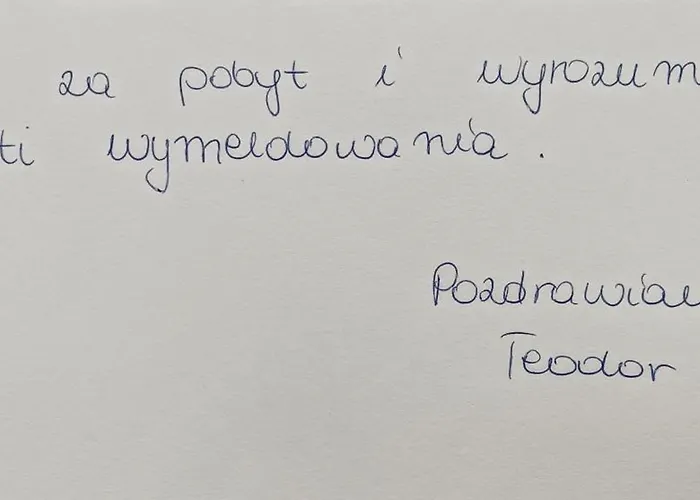 za pobyt i wyrozum
ti wymeldowania.
Pozdrawiam
Teodor